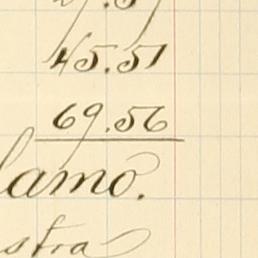 45.51
69.56
lamo.
stra